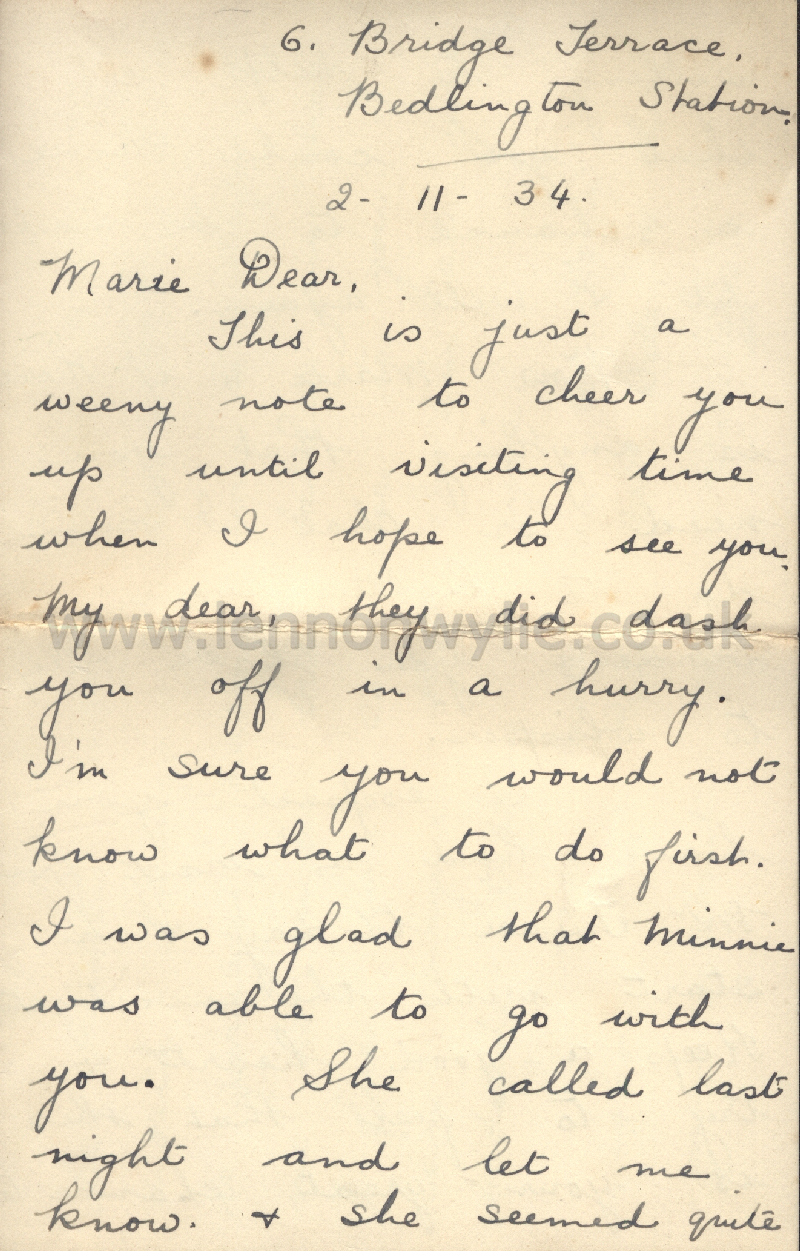 6. Bridge Terrace,
Bedlington Station.
2- 11- 34.
Marie Dear,
This is just a
weeny note to cheer you
up until visiting time
when I hope to see you.
My dear, they did dash
www.lennonwylie.co.uk
you off in a hurry.
I'm sure you would not
know what to do first.
I was glad that Minnie
was able to go with
you. She called last
night and let me
know. & she seemed quite